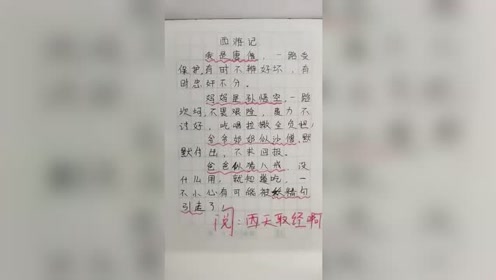 西游记
我是唐僧,一路受
保护,有时不辨好坏,有
时忠奸不分。
妈妈是孙悟空,一路
坎坷,不畏艰险,费力不
讨好,吃喝拉撒全负担,
爷爷奶奶似沙僧,默
默付出,不求回报。
爸爸似猪八戒,没
什么用,就知道吃,一
不小心有可能被妖精勾
引走了!
阅:西天取经啊